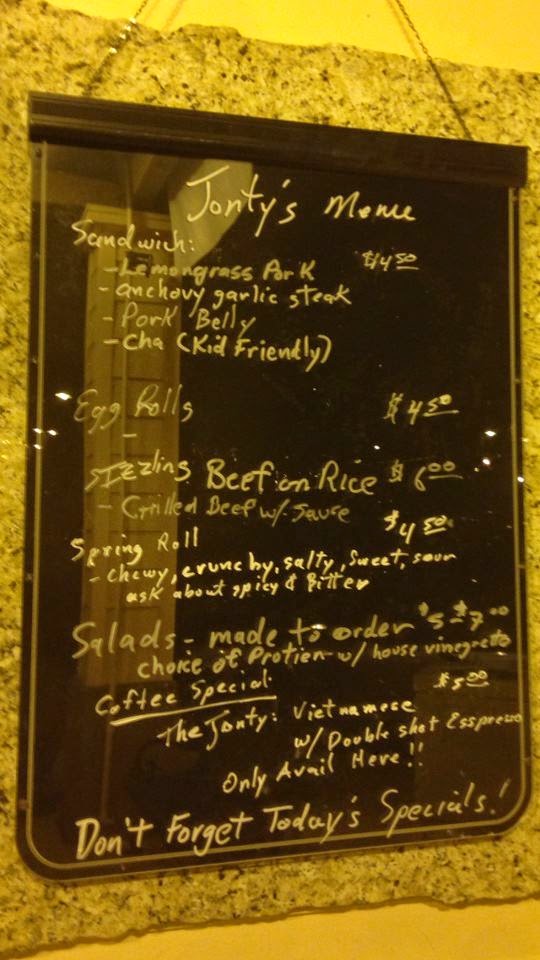 Jonty's Menu
Sandwich:
- Lemongrass Pork $4.50
- anchovy garlic steak
- Pork Belly
- Cha (Kid Friendly)
Egg Rolls $4.50
-
Sizzling Beef on Rice $6.00
- Grilled Beef w/ Sauce
Spring Roll $4.50
- Chewy, crunchy, salty, sweet, sour
ask about spicy & Bitter
Salads - made to order $5-$7.00
choice of Protien w/ house vinegrete
Coffee Special: $5.00
The Jonty: Vietnamese
w/ Double shot Esspresso
Only Avail Here!!
Don't Forget Today's Specials!